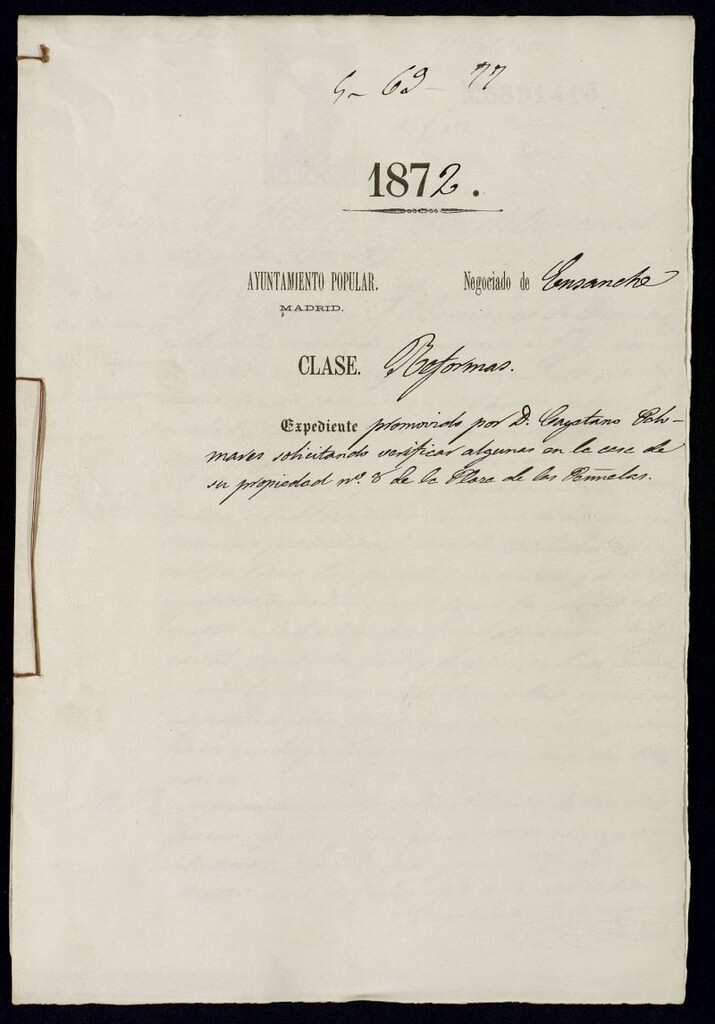 5- 69- 77
1872.
AYUNTAMIENTO POPULAR. Negociado de Ensanche
MADRID.
CLASE. Reformas.
Expediente promovido por D. Cayetano
mares solicitando verificar algunas en la casa de
su propiedad nº. 8 de la Plaza de las Peñuelas.